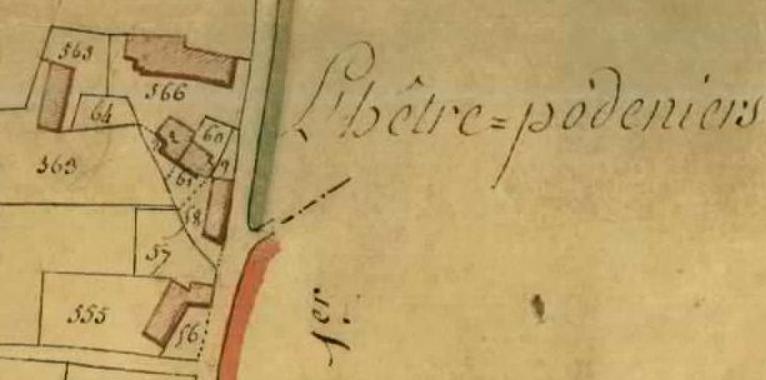 565
566
64
Libêtre=pôdeniers
2
60
9
563
61
58
57
555
56
1er.